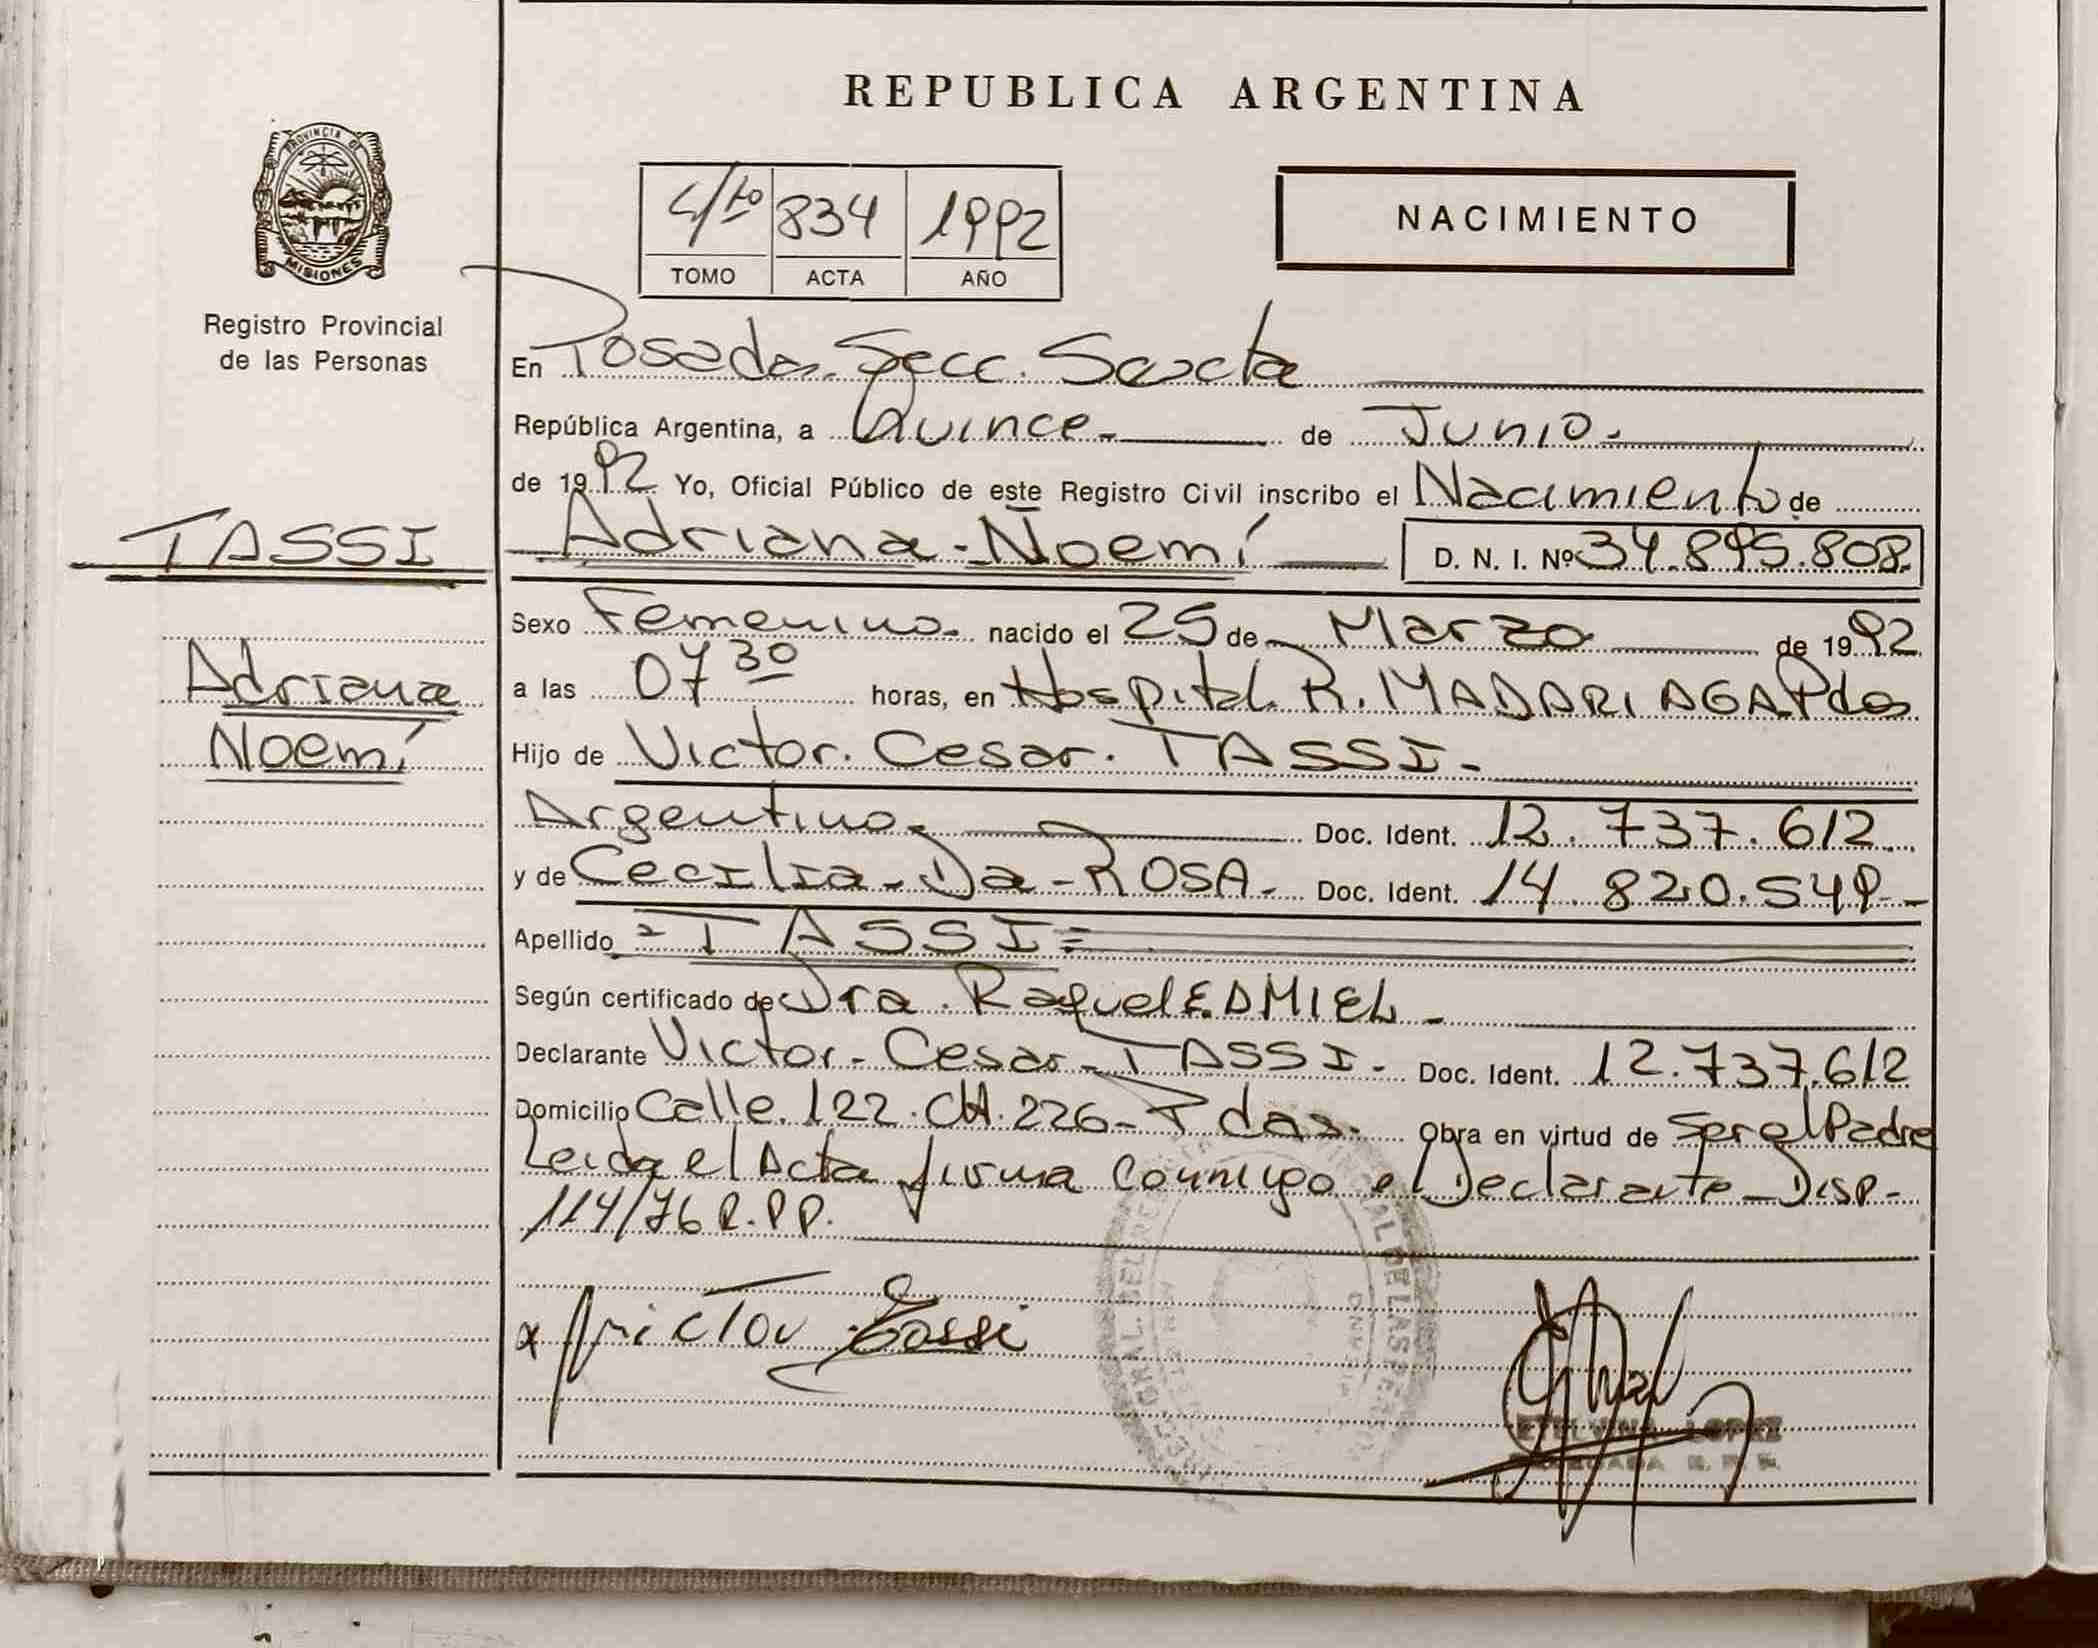 REPUBLICA ARGENTINA
PROVINCIA DE
MISIONES
Registro Provincial
de las Personas
4/to 834 1992
TOMO ACTA AÑO
NACIMIENTO
En Posadas. Secc. Sexta
República Argentina, a Quince de Junio.
de 1992 Yo, Oficial Público de este Registro Civil inscribo el Nacimiento de
Adriana - Noemí D. N. I. Nº 34.895.808.
TASSI
Adriana
Noemí
Sexo Femenino. nacido el 25 de Marzo de 1992
a las 07 30 horas, en Hospital. R. MADARIAGA Pdas
Hijo de Victor. Cesar. TASSI-
Argentino. Doc. Ident. 12.737.612
y de Cecilia - Da - ROSA- Doc. Ident. 14.820.549-
Apellido = TASSI =
Según certificado de Dra. Raquel E. DMIEL -
Declarante Victor - Cesar - TASSI. Doc. Ident. 12.737.612
Domicilio Calle. 122. CH. 226- Pdas. Obra en virtud de Ser el Padre
Leida el Acta firma conmigo el Declarante - Disp-
114/76 R.P.P.
x Victor Tassi
ETELVINA LOPEZ